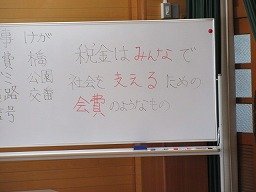 税金はみんなで
社会を支えるための
会費のようなもの
事 けが
費 橋
ミ 公園
路 交番
号